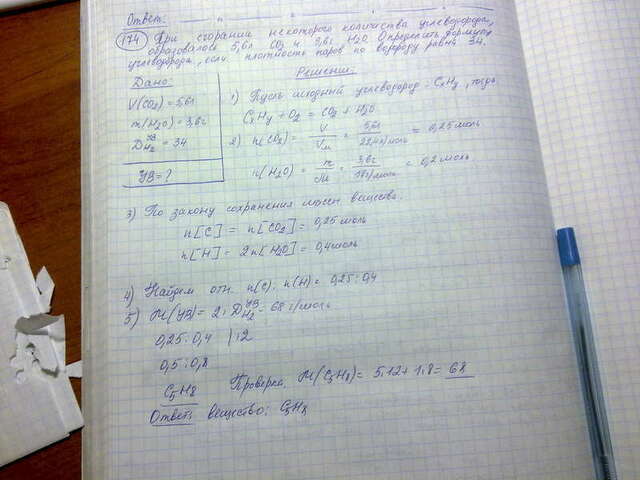 Ответ:
174 При сгорании некоторого количества углеводорода,
образовалось 5,6л CO2 и 3,6г H2O. Определить формулу
углеводорода, если плотность паров по водороду равна 34.
Дано:
V(CO2) = 5,6л
m(H2O) = 3,6г
D H2 УВ = 34
УВ = ?
Решение:
1) Пусть исходный углеводород - CxHy, тогда
CxHy + O2 = CO2 + H2O
2) n(CO2) = V/Vм = 5,6л/22,4л/моль = 0,25 моль
n(H2O) = m/M = 3,6г/18г/моль = 0,2 моль
3) По закону сохранения массы веществ.
n[C] = n[CO2] = 0,25 моль
n[H] = 2n[H2O] = 0,4 моль
4) Найдем отн. n(C) : n(H) = 0,25 : 0,4
5) M(УВ) = 2 · D H2 УВ = 68 г/моль
0,25 : 0,4 | · 2
0,5 : 0,8
C5H8
Проверка, M(C5H8) = 5·12 + 1·8 = 68
Ответ: вещество: C5H8